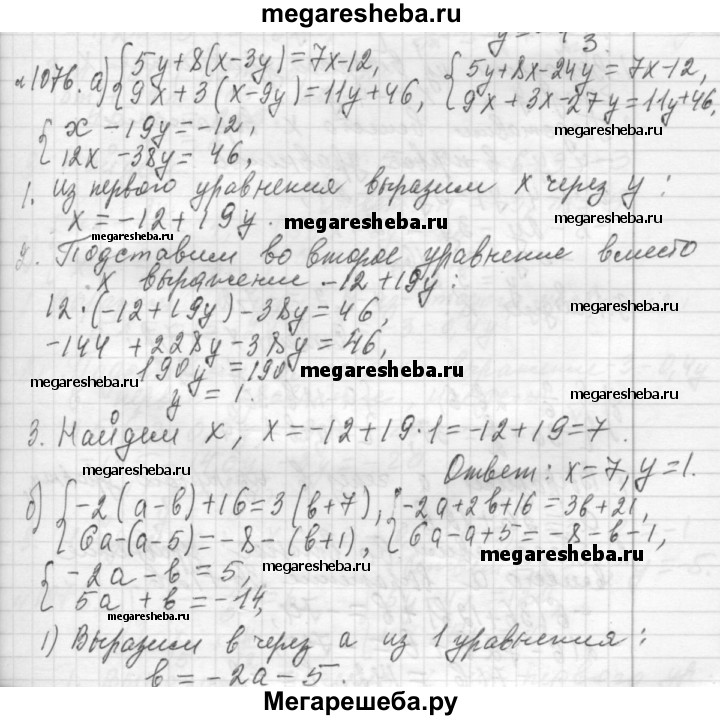 megaresheba.ru
y = 3.
№1076. а) { 5y+8(x-3y)=7x-12, { 5y+8x-24y=7x-12,
9x+3(x-9y)=11y+46, 9x+3x-27y=11y+46,
{ x-19y=-12,
12x-38y=46,
1. Из первого уравнения выразим x через y:
x=-12+19y.
megaresheba.ru
2. Подставим во второе уравнение вместо
x выражение -12+19y:
12·(-12+19y)-38y=46,
megaresheba.ru
-144+228y-38y=46,
190y=190
megaresheba.ru
megaresheba.ru
y=1.
megaresheba.ru
3. Найдем x, x=-12+19·1=-12+19=7.
megaresheba.ru
Ответ: x=7, y=1.
б) { -2(a-b)+16=3(b+7), { -2a+2b+16=3b+21,
6a-(a-5)=-8-(b+1), 6a-a+5=-8-b-1,
megaresheba.ru
{ -2a-b=5,
5a+b=-14,
megaresheba.ru
megaresheba.ru
1) Выразим b через a из 1 уравнения:
b=-2a-5.
Мегарешеба.ру